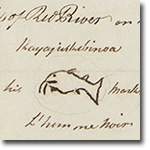 of Red River
Kayajieskebinoa
his Mark
L'homme Noir